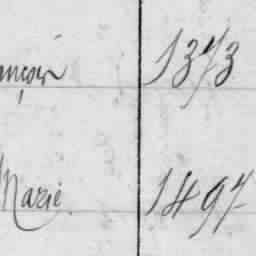 ançois 1373
Marie 1497